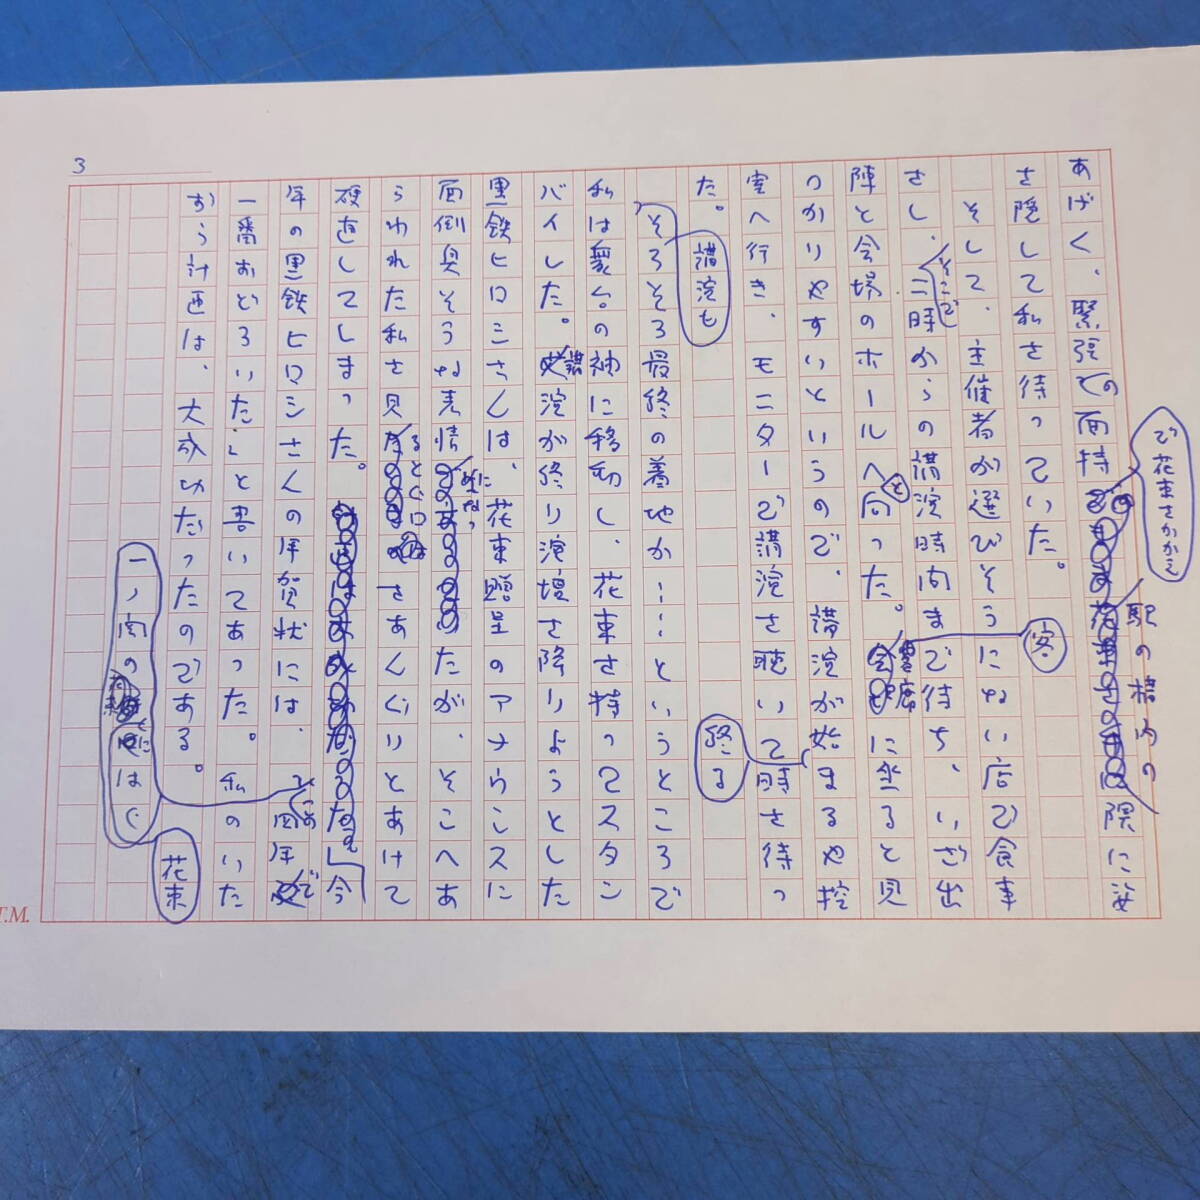 3
あげく、緊張の面持
で花束をかかえ
駅の構内の
隅に姿
を隠して私を待っていた。
そして、主催者が選びそうにない店で食事
をし、そこで
二時からの講演時間まで待ち、いざ出
陣と会場のホールへと向った。
客席
に坐ると見
つかりやすいというので、講演が始まるや控
室へ行き、モニターで講演を聴いて
終る
時を待っ
た。
講演も
そろそろ最終の着地か……というところで
私は舞台の袖に移動し、花束を持ってスタン
バイした。講演が終り演壇を降りようとした
黒鉄ヒロシさんは、花束贈呈のアナウンスに
面倒臭そうな表情になったが、そこへあ
らわれた私を見ると、口をあんぐりとあけて
硬直してしまった。
今
年の黒鉄ヒロシさんの年賀状には、
「この四年で
一番おどろいた」と書いてあった。私のいた
ずら計画は、大成功だったのである。
花束
T.M.